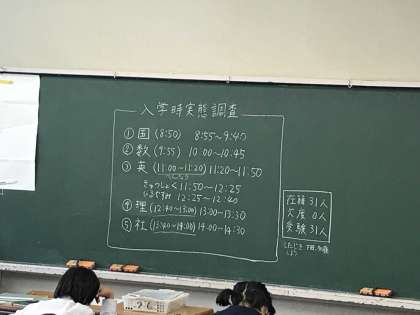 入学時実態調査
① 国 (8:50) 8:55～9:40
② 数 (9:55) 10:00～10:45
③ 英 (11:00～11:20) 11:20～11:50
きゅうしょく 11:50～12:25
ひるやすみ 12:25～12:40
④ 理 (12:40～13:00) 13:00～13:30
⑤ 社 (13:40～14:00) 14:00～14:30
在籍 31人
欠席 0人
受験 31人